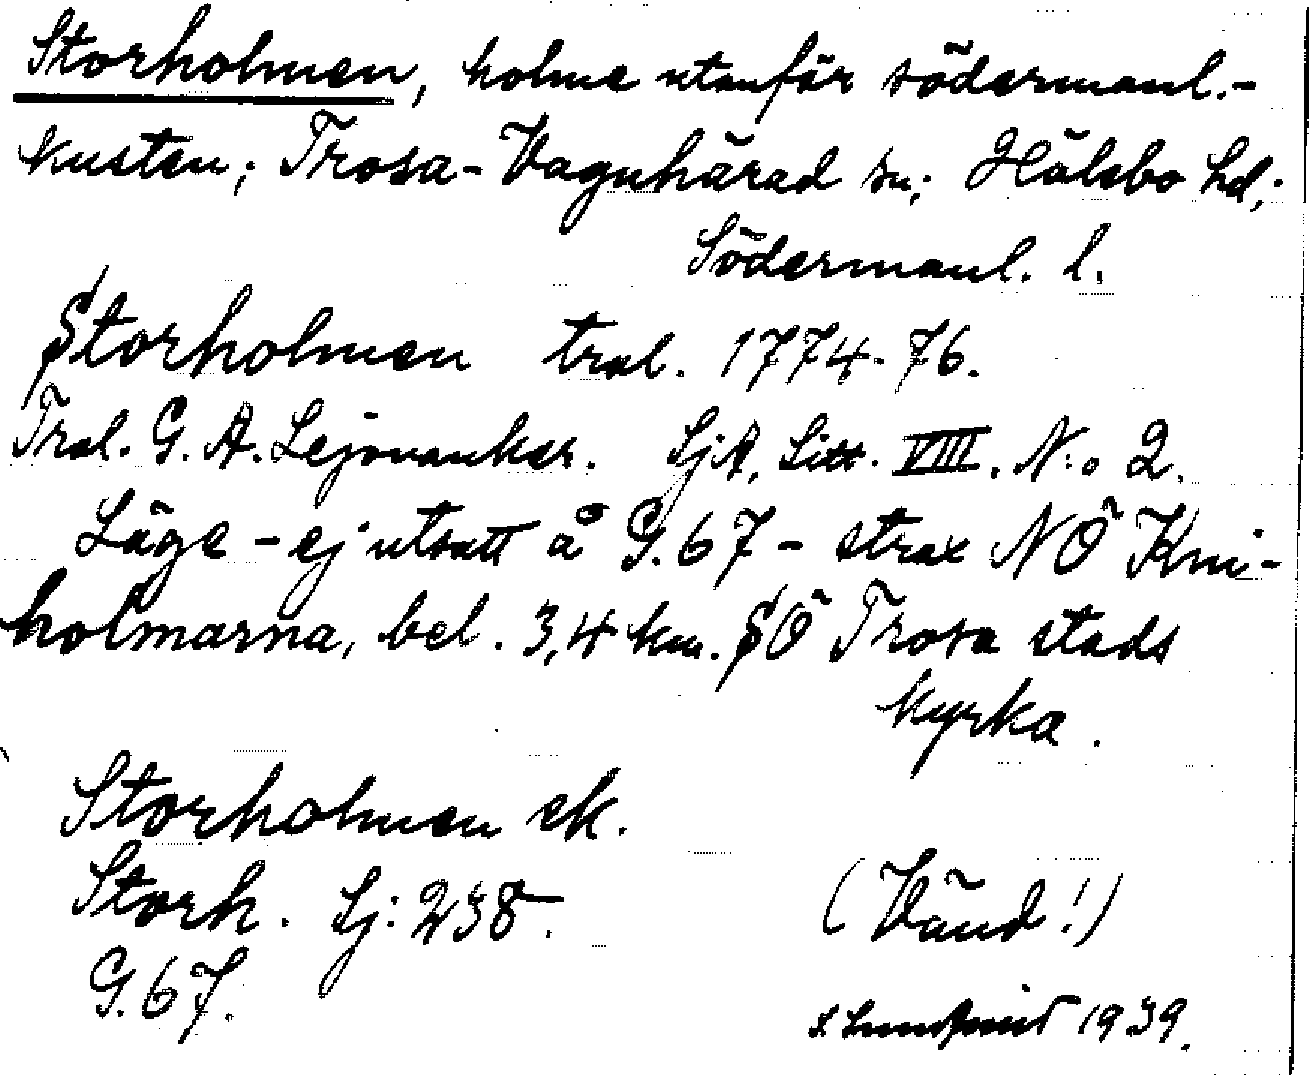 Storholmen, holme utanför södermanl.-
kusten; Trosa-Vagnhärad sn; Hölebo hd;
Södermanl. l.
Storholmen tral. 1774-76.
Tral. G. A. Lejonanker. SjA, Litt. VIII. N:o 2.
Läge - ej utsatt å G.67 - strax NÖ Kni-
holmarna, bel. 3,4 km. SÖ Trosa stads
kyrka.
Storholmen ek.
Storh. Sj: 238.
G.67.
(Vänd!)
Lundqvist 1939.